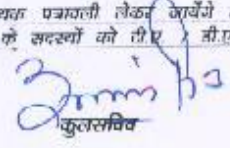 यक पत्रावली लेकर जायेंगे
के सदस्यों को टी.ए. डी.ए.
कुलसचिव